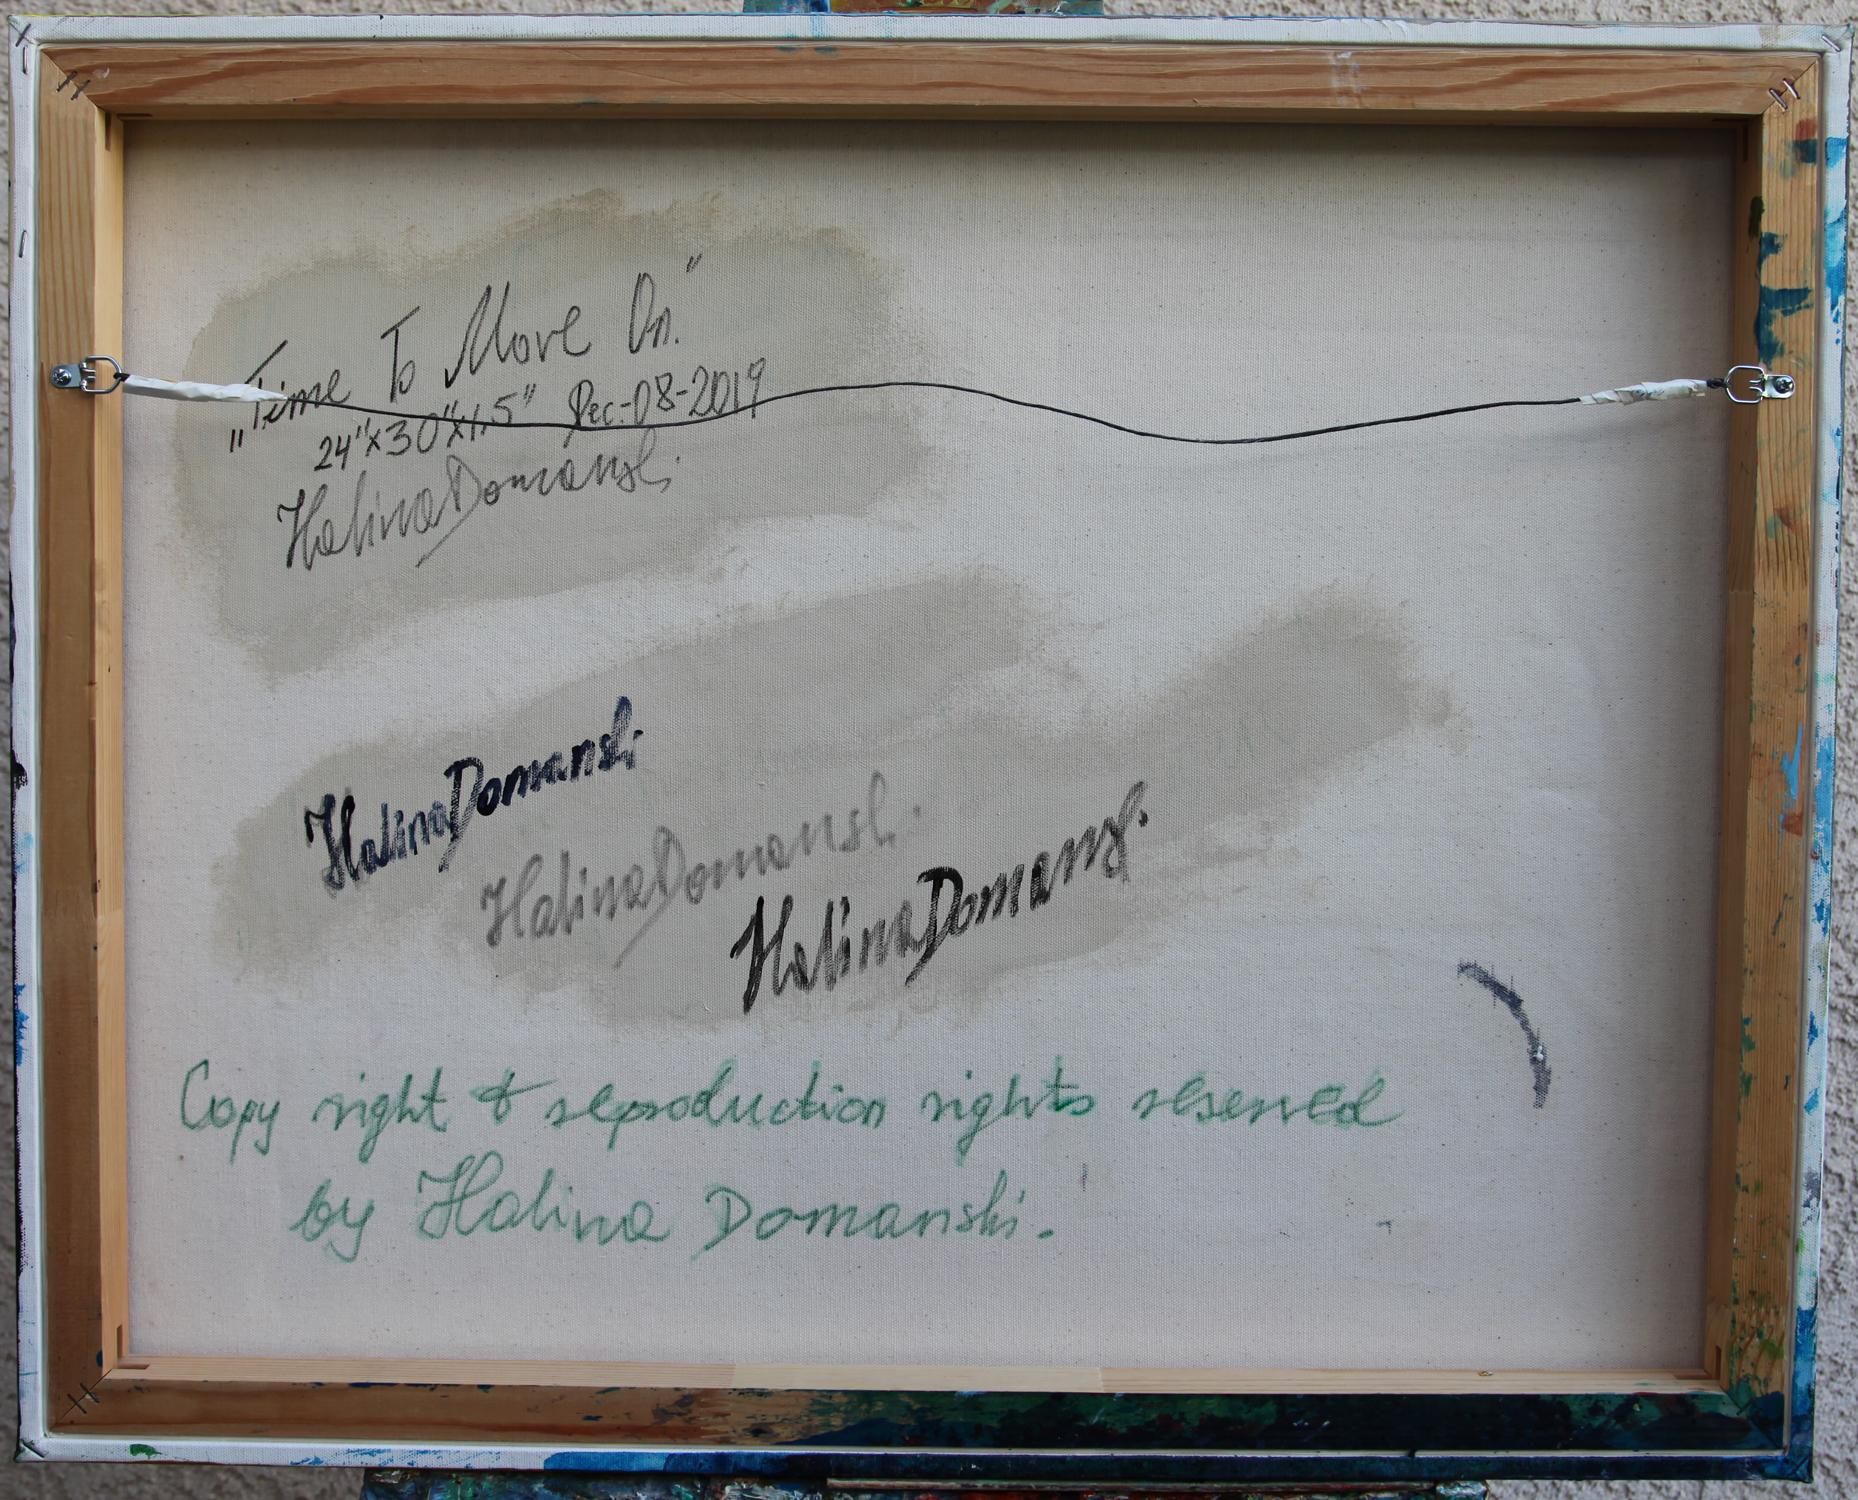 „Time To Move On."
24"x30"x1.5" Dec-08-2019
Halina Domanski
Halina Domanski
Halina Domanski
Halina Domanski
Copy right & reproduction rights reserved
by Halina Domanski.